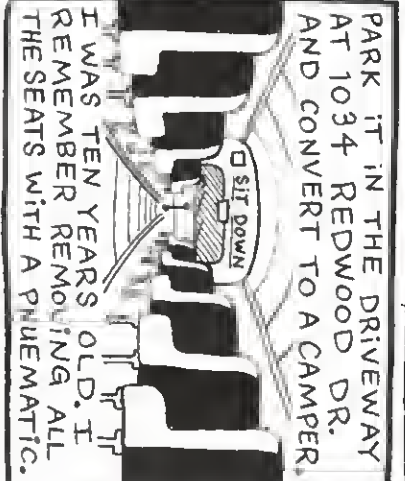 PARK IT IN THE DRIVEWAY
AT 1034 REDWOOD DR.
AND CONVERT TO A CAMPER.
SIT DOWN
I WAS TEN YEARS OLD. I
REMEMBER REMOVING ALL
THE SEATS WITH A PNUEMATIC.